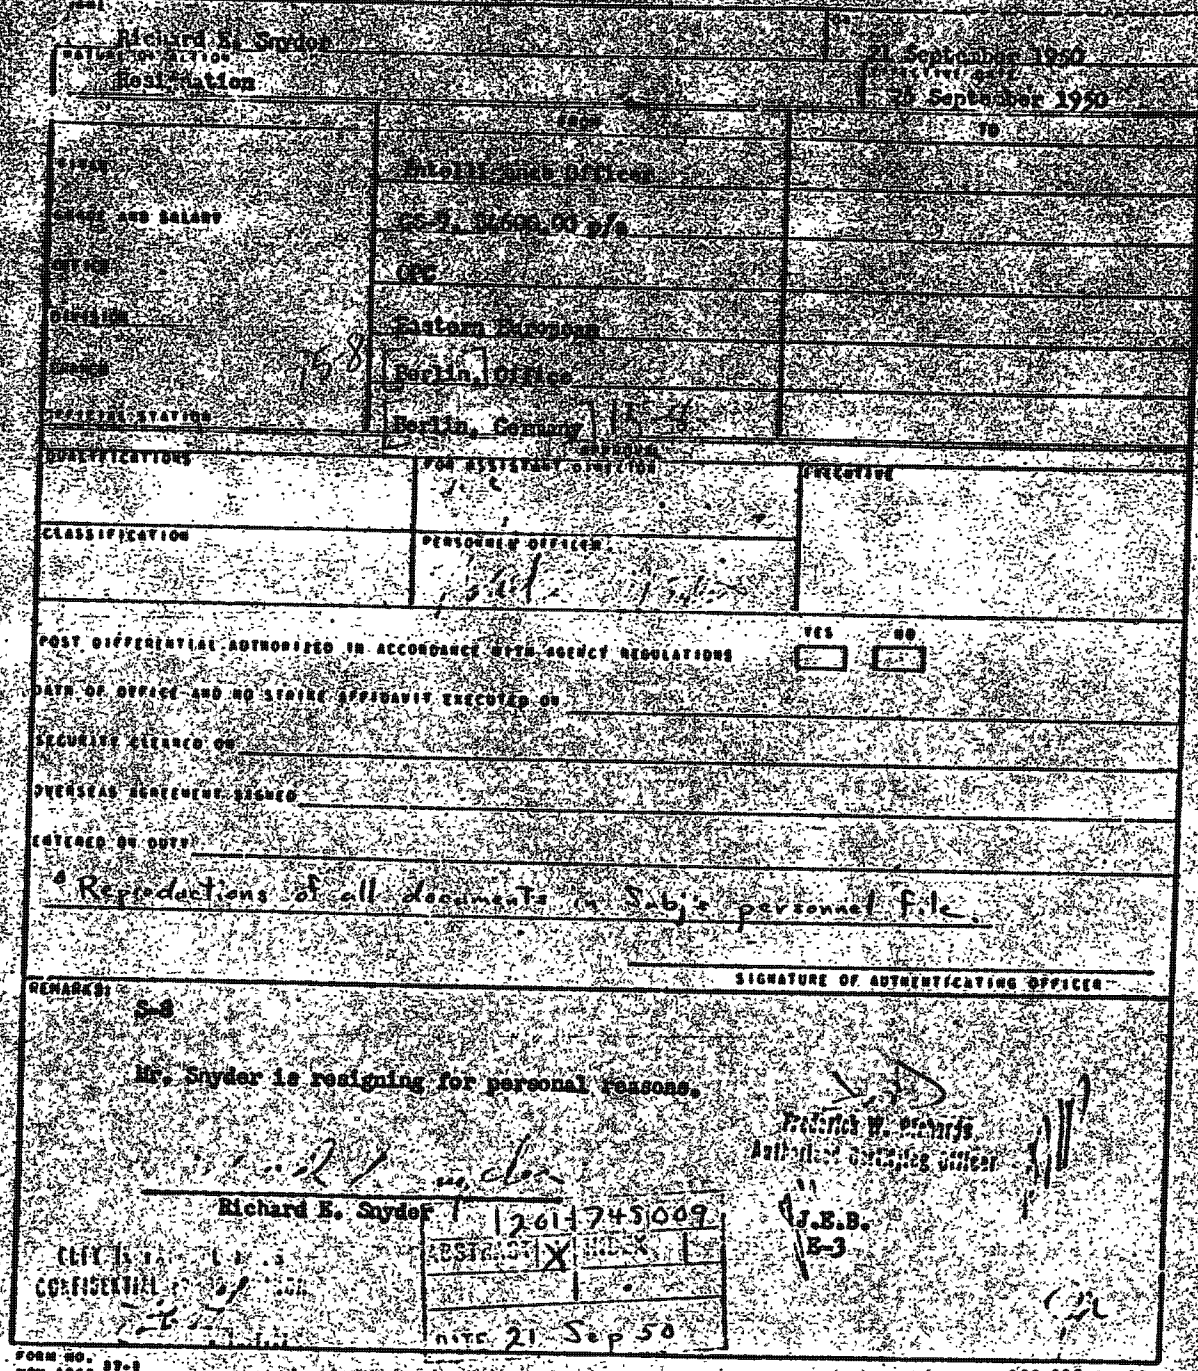 Richard E. Snyder
21 September 1950
NATURE OF ACTION
EFFECTIVE DATE
Resignation
25 September 1950
FROM
TO
TITLE
Intelligence Officer
GRADE AND SALARY
GS-9, $4600.00 p/a
OFFICE
OPC
DIVISION
Eastern European
BRANCH
Berlin, Office
OFFICIAL STATION
Berlin, Germany
APPROVAL
QUALIFICATIONS
FOR ASSISTANT DIRECTOR
EXECUTIVE
CLASSIFICATION
PERSONNEL OFFICER
POST DIFFERENTIAL AUTHORIZED IN ACCORDANCE WITH AGENCY REGULATIONS
YES
NO
OATH OF OFFICE AND NO STRIKE AFFIDAVIT EXECUTED ON
SECURITY CLEARED ON
OVERSEAS AGREEMENT SIGNED
ENTERED ON DUTY
Reproductions of all documents in Subj's personnel file.
SIGNATURE OF AUTHENTICATING OFFICER
REMARKS:
S-8
Mr. Snyder is resigning for personal reasons.
Authorized Certifying Officer
Richard E. Snyder
201-745009
J.E.B.
E-3
ABSTRACT X INDEX
CONFIDENTIAL
DATE 21 Sep 50
FORM NO. 37-3